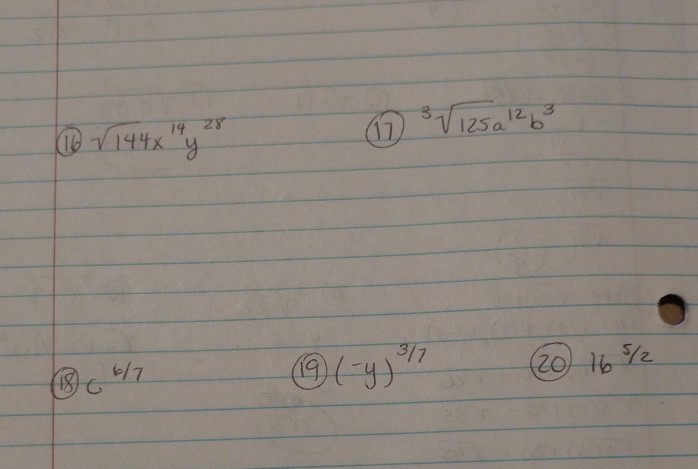 ⑯ √144x¹⁴y²⁸ ⑰ ³√125a¹²b³
⑱ c^6/7 ⑲ (-y)^3/7 ⑳ 16^5/2